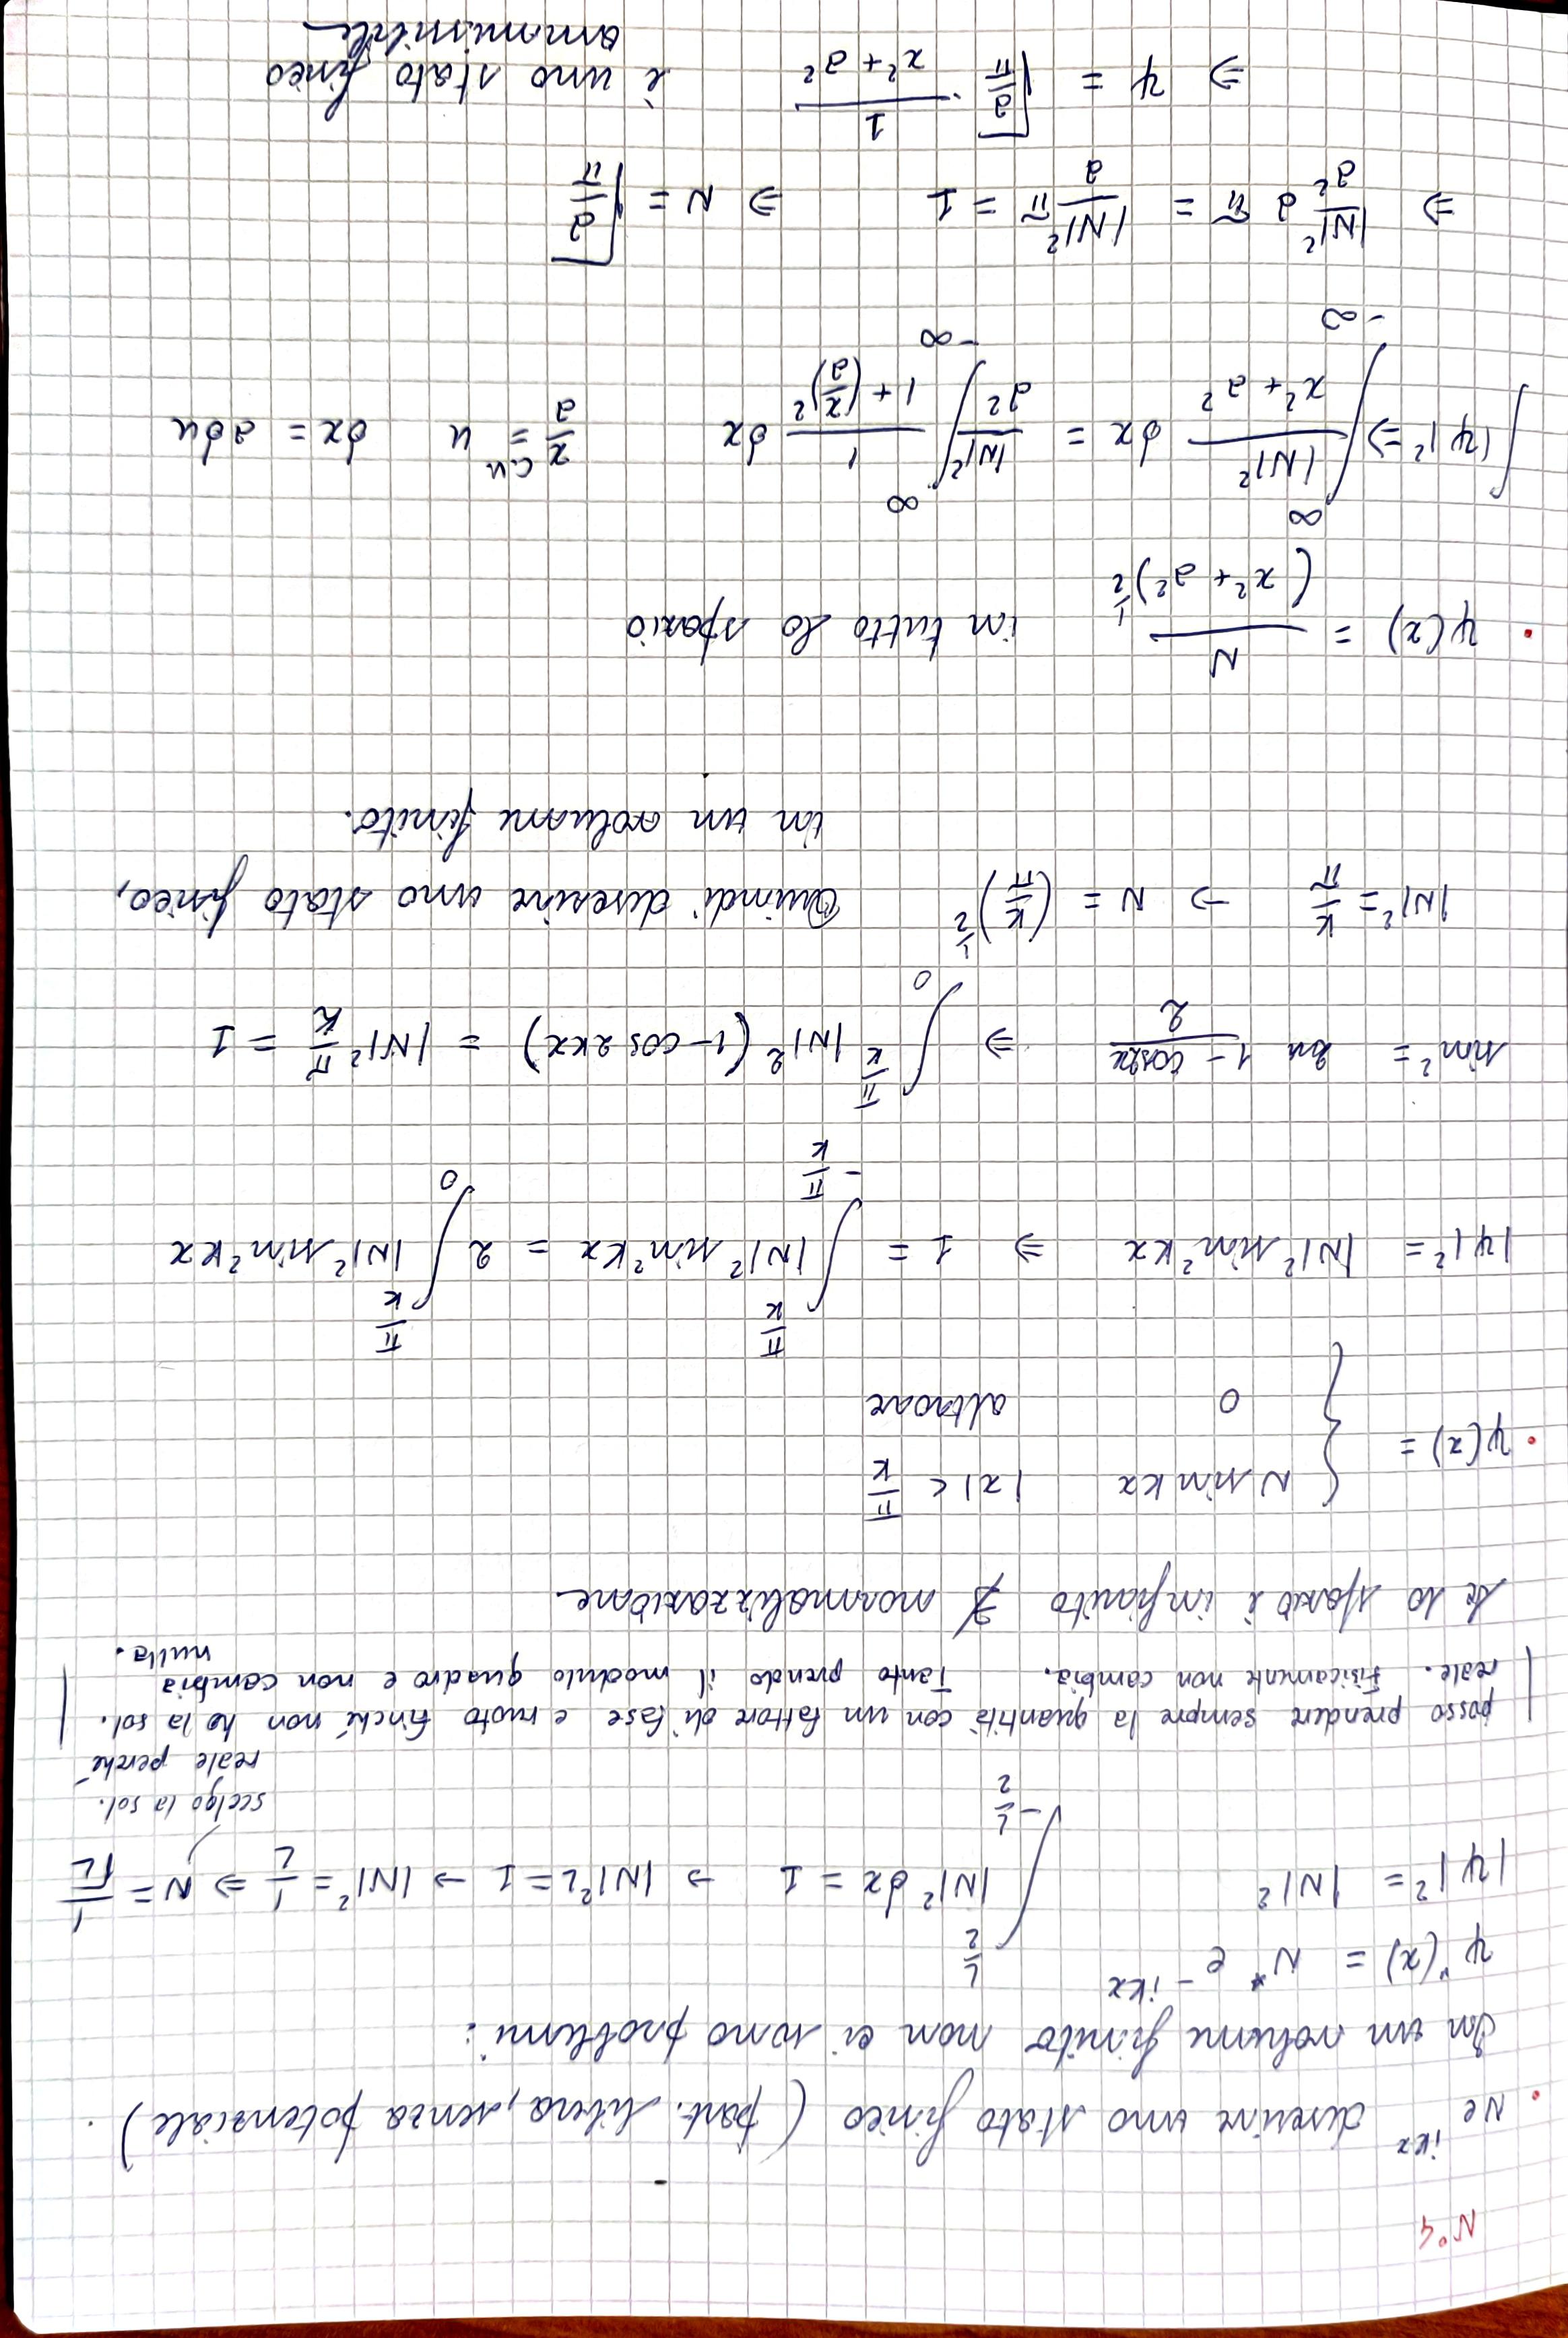 N°4
• Ne^{ikx} descrive uno stato fisico (part. libera, senza potenziale).
In un volume finito non ci sono problemi:
ψ*(x) = N* e^{-ikx}
|ψ|² = |N|² ∫_{-L/2}^{L/2} |N|² dx = 1 → |N|² L = 1 → |N|² = 1/L ⇒ N = 1/√L
scelgo la sol.
reale perché
posso prendere sempre la quantità con un fattore di fase e ruoto finché non ho la sol.
reale. Fisicamente non cambia. Tanto prendo il modulo quadro e non cambia
nulla.
Se lo spazio è infinito ∄ normalizzazione
• ψ(x) = { N sin kx |x| < π/k
0 altrove
|ψ|² = |N|² sin² kx ⇒ 1 = ∫_{-π/k}^{π/k} |N|² sin² kx = 2 ∫_0^{π/k} |N|² sin² kx
sin² = 1 - cos2x / 2 ⇒ ∫_0^{π/k} |N|² (1 - cos 2kx) = |N|² π/k = 1
|N|² = k/π → N = (k/π)^{1/2} Quindi descrive uno stato fisico,
in un volume finito.
• ψ(x) = N / (x² + a²)^{1/2} in tutto lo spazio
∫|ψ|² ⇒ ∫_{-∞}^{∞} |N|² / (x² + a²) dx = |N|²/a² ∫_{-∞}^{∞} 1 / (1 + (x/a)²) dx x/a = u c.v dx = a du
⇒ |N|²/a² a π = |N|²/a π = 1 ⇒ N = √(a/π)
⇒ ψ = √(a/π) · 1 / (x² + a²) è uno stato fisico
ammissibile